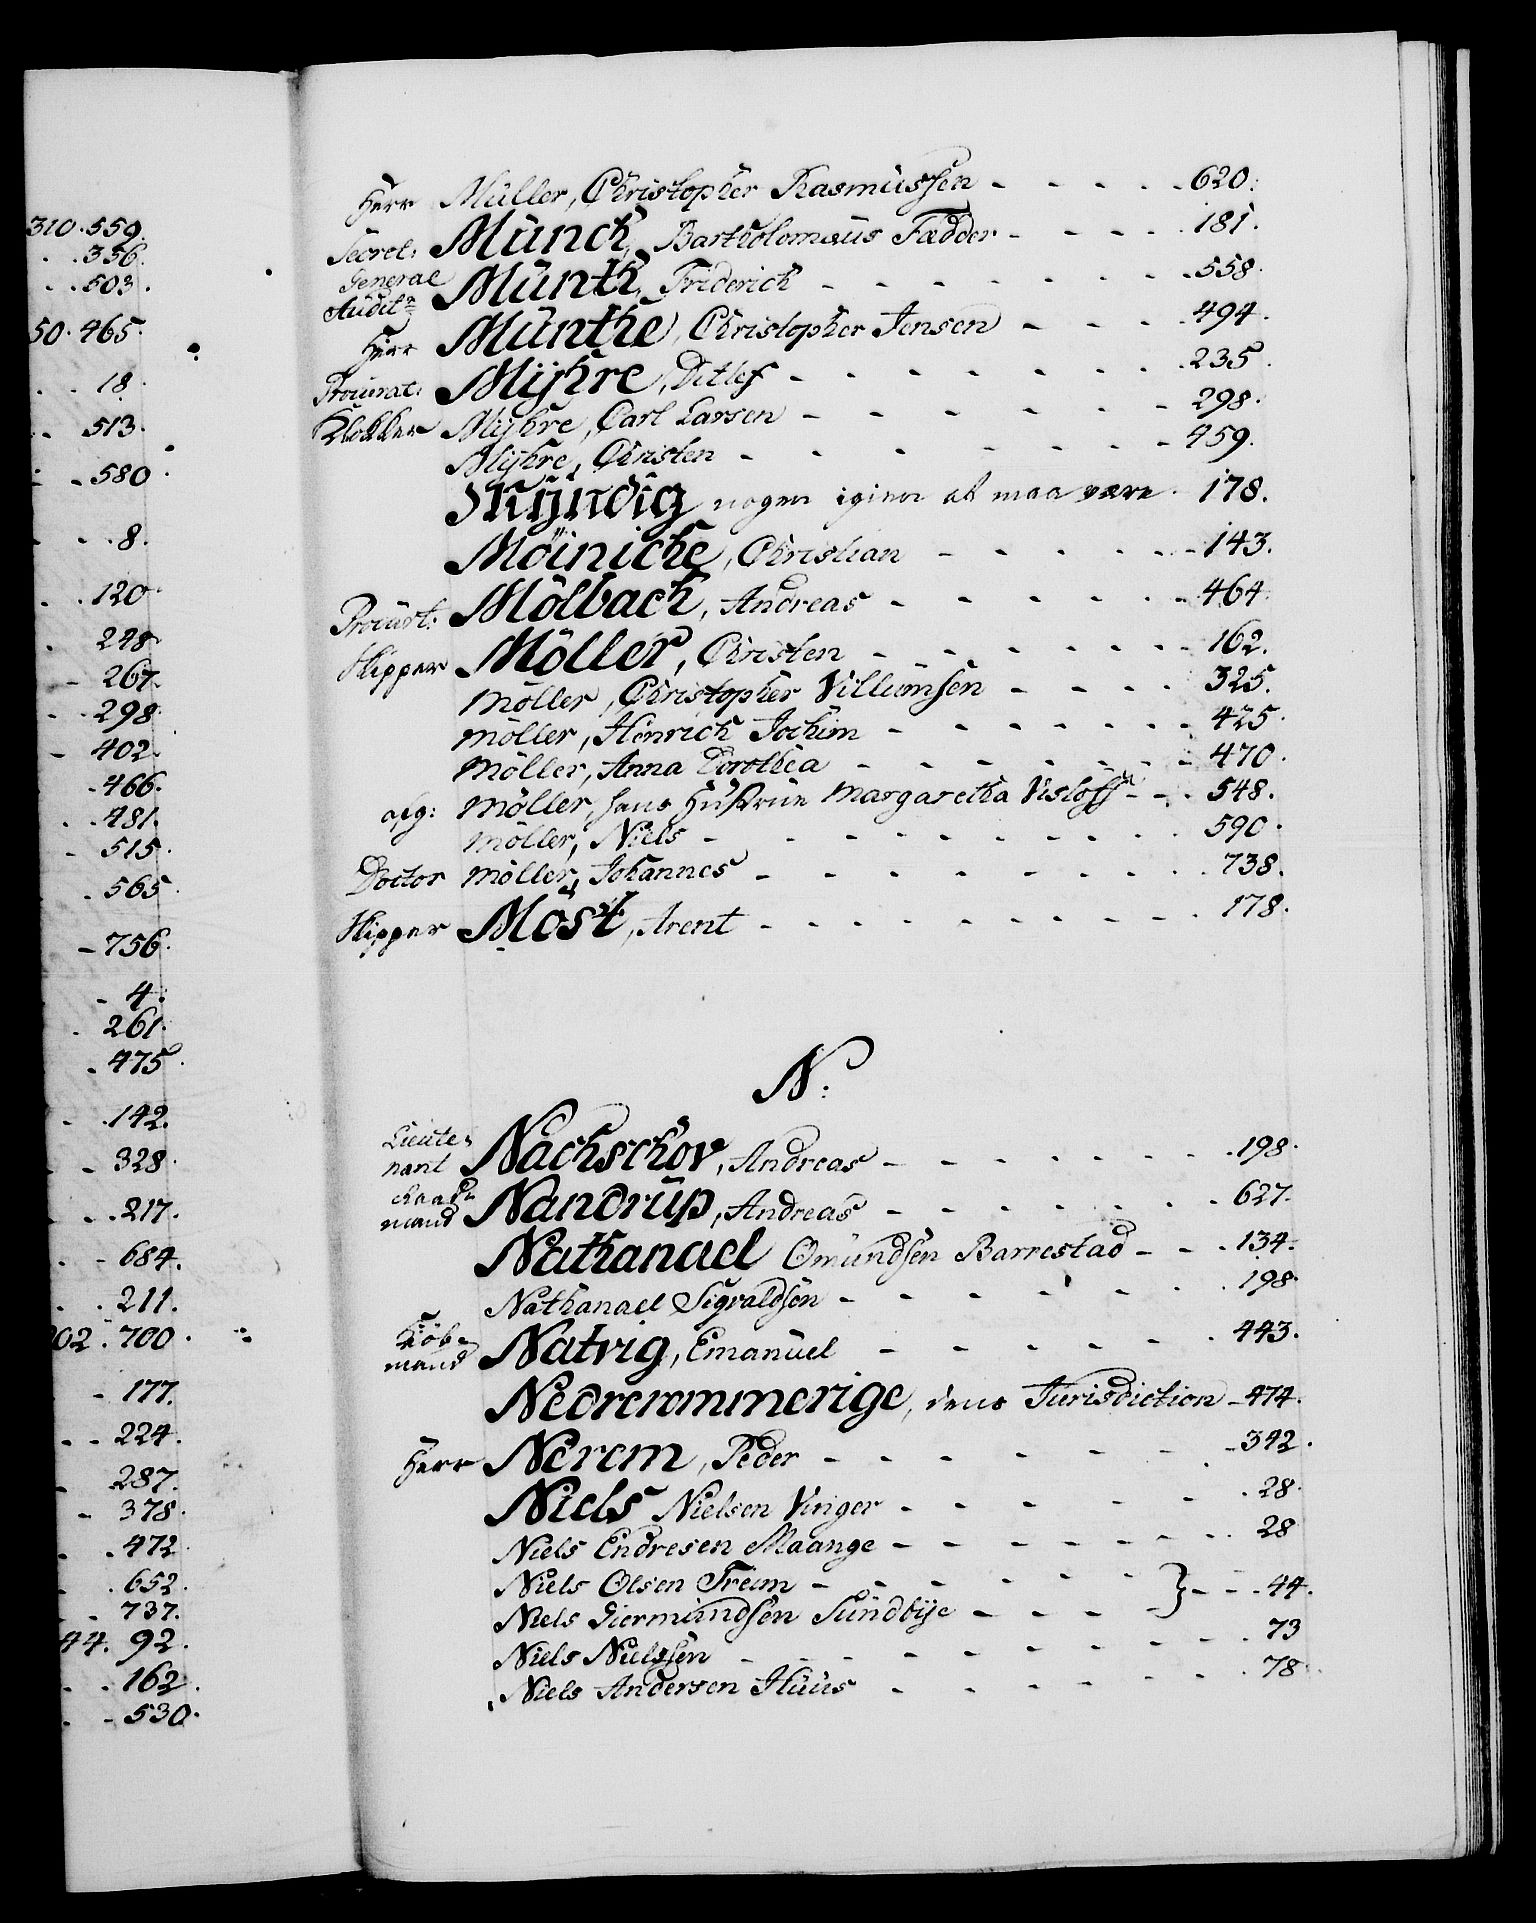 310. 559.
356.
503.
50. 465.
18.
513.
580.
8.
120.
248.
267.
298.
402.
466.
481.
515.
565.
756.
4.
261.
475.
142.
328.
217.
684.
211.
302. 700.
177.
224.
287.
378.
472.
652.
737.
44. 92.
162.
530.
Herr Müller, Christopher Rasmussen - - - - - 620.
Secret: Münch, Bartholomæus Fædder - - - - - 181.
General Audit: Münth, Friderich - - - - - - - 558.
Herr Münthe, Christopher Jensen - - - - 494.
Procurat: Mÿhre, Ditlef - - - - - - - - 235.
Klokker Mÿhre, Carl Larsen - - - - - - - 298.
Mÿhre, Christen - - - - - - - - 459.
Mÿndig nogen igien at maa være. 178.
Möiniche, Christian - - - - - - 143.
Procurt: Mölbach, Andreas - - - - - - - 464.
Skipper Möller, Christen - - - - - - - 162.
Möller, Christopher Villumsen - - - - 325.
Möller, Henrich Jochim - - - - - - - 425.
Möller, Anna Dorothea - - - - - - - 470.
afg: Möller, hans Hustrue Margaretha Visloff - - - 548.
Möller, Niels - - - - - - - - - 590.
Doctor Möller, Johannes - - - - - - - - 738.
Skipper Möst, Arent - - - - - - - - - 178.
N:
Lieutenant Nachschov, Andreas - - - - - - - - 198.
Raadmand Nandrup, Andreas - - - - - - - 627.
Nathanael Omundsen Barrestad - - - 134.
Nathanael Sigvaldsen - - - - - - - 198.
Kiöbmand Natvig, Emanuel - - - - - - 443.
Nedrerommerige, dens Jurisdiction - 474.
Herr Nerem, Peder - - - - - - - 342.
Niels Nielsen Vinger - - - - - - - 28.
Niels Endresen Maange - - - - - - - 28
Niels Olsen Treim - - - - - - } - - - 44.
Niels Giermundsen Sundbÿe - - - -
Niels Nielssen - - - - - - - - 73
Niels Andersen Huus - - - - - - - 78.